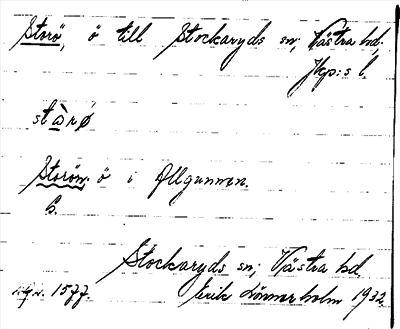 Storö, ö till Stockaryds sn, Västra hd,
Jkp:s l.
stàrø
Storön, ö i Allgunnen.
B.
Stockaryds sn, Västra hd
1577. Erik Lönnerholm 1932.